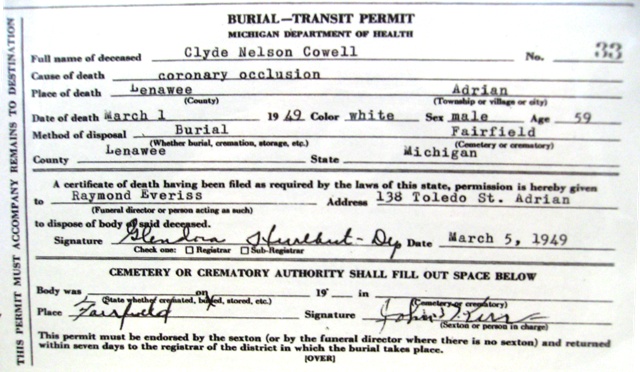 BURIAL—TRANSIT PERMIT
MICHIGAN DEPARTMENT OF HEALTH
Full name of deceased Clyde Nelson Cowell No. 33
Cause of death coronary occlusion
Place of death Lenawee Adrian
(County) (Township or village or city)
Date of death March 1 1949 Color white Sex male Age 59
Method of disposal Burial Fairfield
(Whether burial, cremation, storage, etc.) (Cemetery or crematory)
County Lenawee State Michigan
A certificate of death having been filed as required by the laws of this state, permission is hereby given
to Raymond Everiss Address 138 Toledo St. Adrian
(Funeral director or person acting as such)
to dispose of body of said deceased.
Signature Glendora Hurlbut-Dep Date March 5, 1949
Check one: Registrar Sub-Registrar
CEMETERY OR CREMATORY AUTHORITY SHALL FILL OUT SPACE BELOW
Body was on 19 in
(State whether cremated, buried, stored, etc.) (Cemetery or crematory)
Place Fairfield Signature John
(Sexton or person in charge)
This permit must be endorsed by the sexton (or by the funeral director where there is no sexton) and returned
within seven days to the registrar of the district in which the burial takes place.
[OVER]
THIS PERMIT MUST ACCOMPANY REMAINS TO DESTINATION